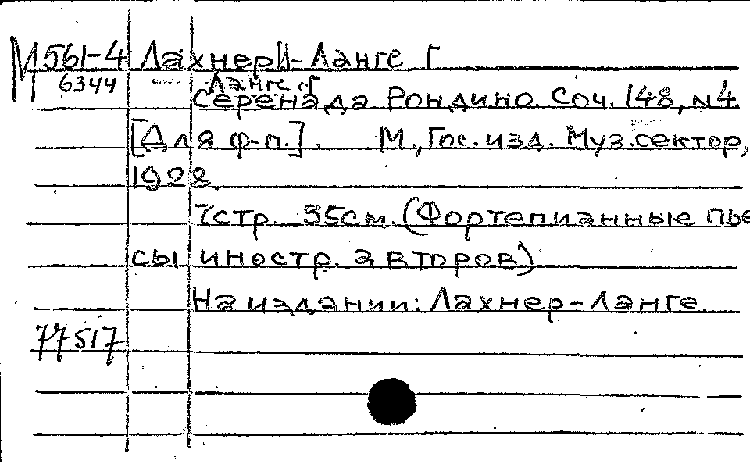 М 561-4 Лахнер И-Ланге Г
6344 Ланге Г
Серенада Рондино. Соч. 148, №4
[Для ф-п.]. М., Гос. изд. Муз. сектор,
1928.
7стр. 35см. (Фортепианные пье
сы иностр. авторов)
На издании: Лахнер-Ланге
77517